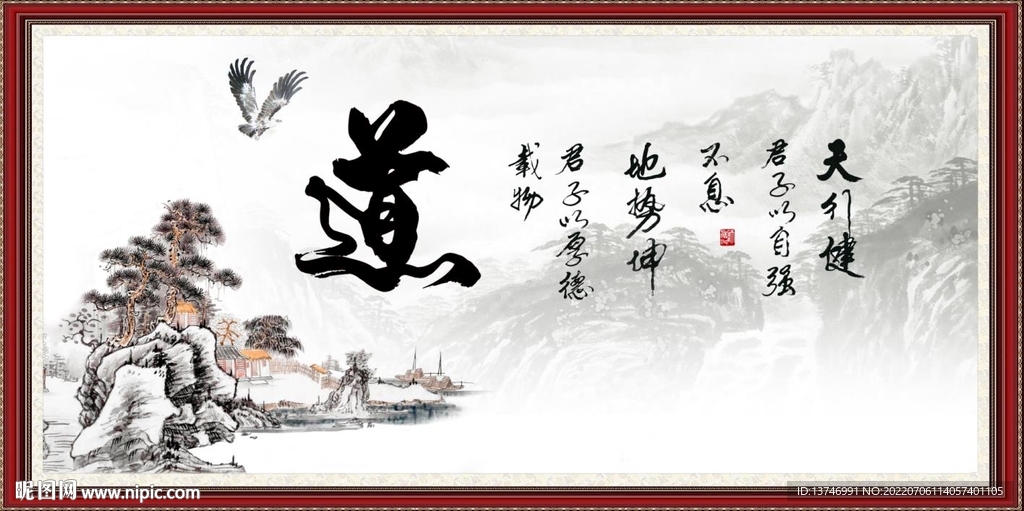 道
天行健
君子以自强
不息
地势坤
君子以厚德
载物
昵图网 www.nipic.com
ID:13746991 NO:20220706114057401105